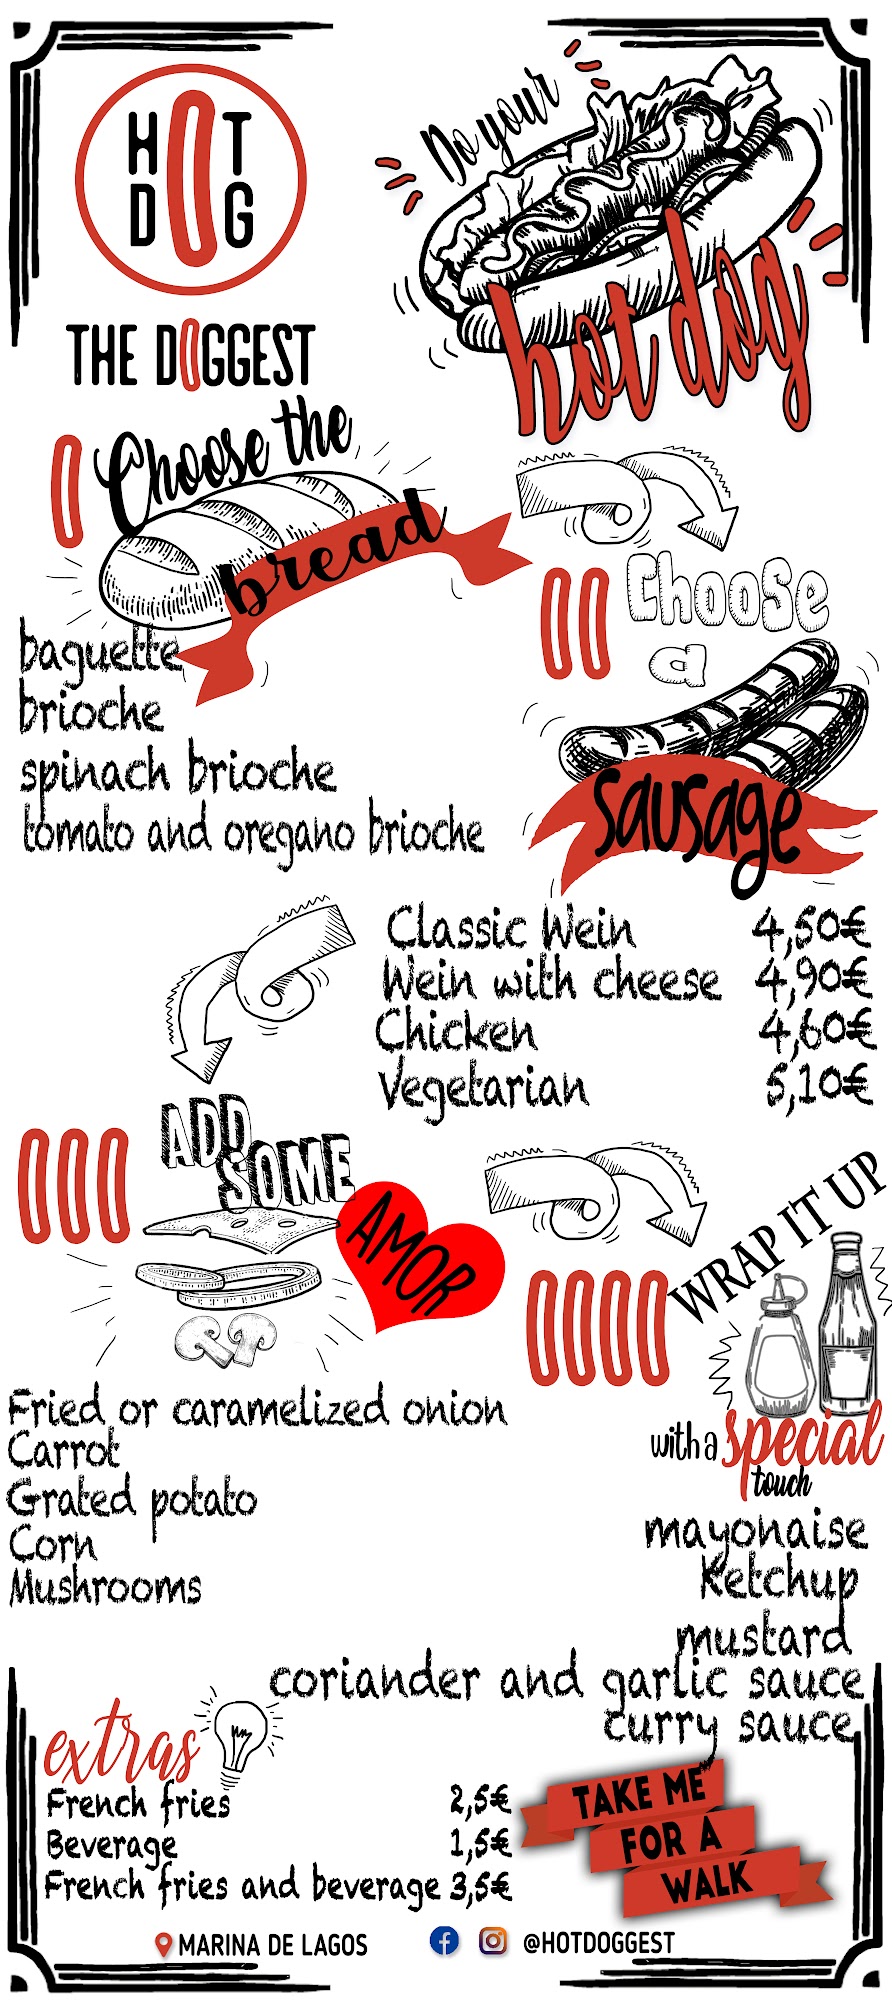 HOT
DOG
THE DOGGEST
Do your
hot dog
Choose the
bread
baguette
brioche
spinach brioche
tomato and oregano brioche
Choose
a
sausage
Classic Wein 4,50€
Wein with cheese 4,90€
Chicken 4,60€
Vegetarian 5,10€
ADD
SOME
AMOR
Fried or caramelized onion
Carrot
Grated potato
Corn
Mushrooms
WRAP IT UP
with a special
touch
mayonaise
Ketchup
mustard
coriander and garlic sauce
curry sauce
extras
French fries 2,5€
Beverage 1,5€
French fries and beverage 3,5€
TAKE ME
FOR A
WALK
MARINA DE LAGOS
@HOTDOGGEST